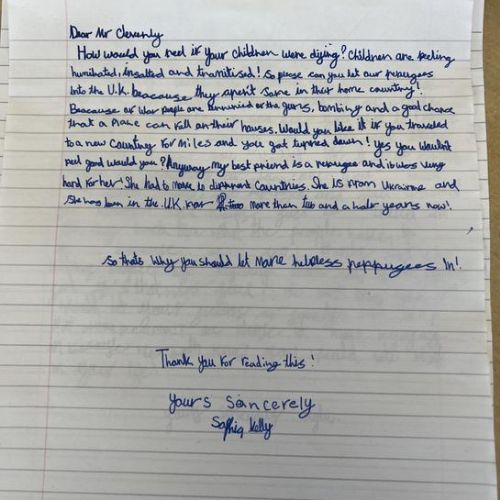 Dear Mr Cleverly
How would you feel if your children were dying? Children are feeling
humiliated, insalted and tramitised! So please can you let our refugees
into the U.K. beacause they aren't safe in their home country!
Beacause of War people are terrurised of the guns, bombing and a good chance
that a Plane can fall on their houses. Would you like it if you traveled
to a new Country for miles and you got turned down! Yes you wouldn't
feel good would you? Anyway my best friend is a refugee and it was very
hard for her! She had to move to different Countries. She is from Ukraine and
she has been in the UK for more than two and a half years now!
So thats why you should let more helpless reffugees in!
Thank you for reading this!
Yours Sancerely
Sophia Kelly